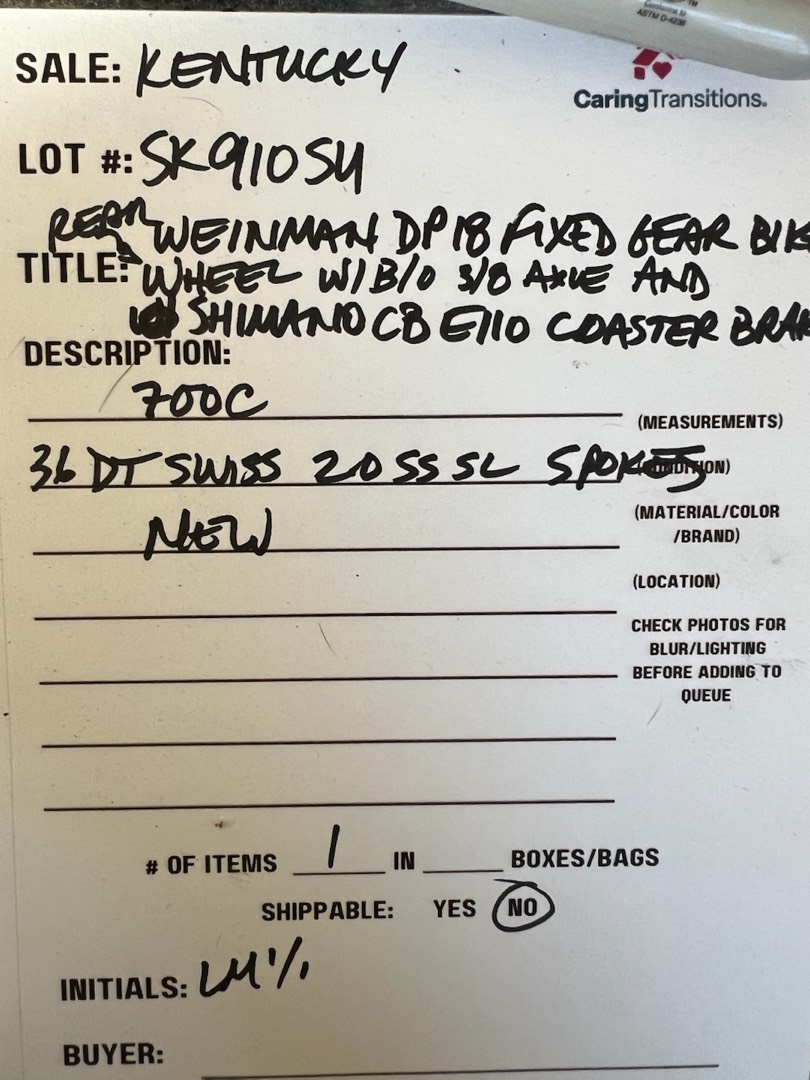 Conforms to
ASTM D-4236
SALE: KENTUCKY
CaringTransitions.
LOT #: SK910SU
REAR WEINMAN DP18 FIXED GEAR BIK
TITLE: WHEEL W/B/O 3/8 AXLE AND
SHIMANO CB E110 COASTER BRA
DESCRIPTION:
700C
(MEASUREMENTS)
36 DT SWISS 2.0 SS SL SPOKES
(CONDITION)
NEW
(MATERIAL/COLOR
/BRAND)
(LOCATION)
CHECK PHOTOS FOR
BLUR/LIGHTING
BEFORE ADDING TO
QUEUE
# OF ITEMS 1 IN ____ BOXES/BAGS
SHIPPABLE: YES NO
INITIALS: LM
BUYER: